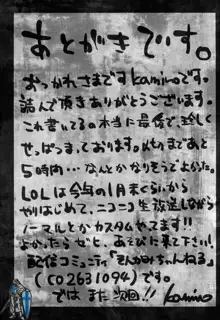 あとがきです。
おつかれさまですkaminoです。
読んで頂きありがとうございます。
これ書いてるの本当に最後で、珍しく
せっぱつまっております。〆切まであと
5時間…なんとかなりそうでよかった。
LOLは今年の1月末ぐらいから
やりはじめて、ニコニコ生放送しながら
ノーマルとかカスタムやってます!!
よかったらぜひ、あそびに来て下さい!
配信コミュニティ
(co2631094)です。
ではまた次回!! kamino